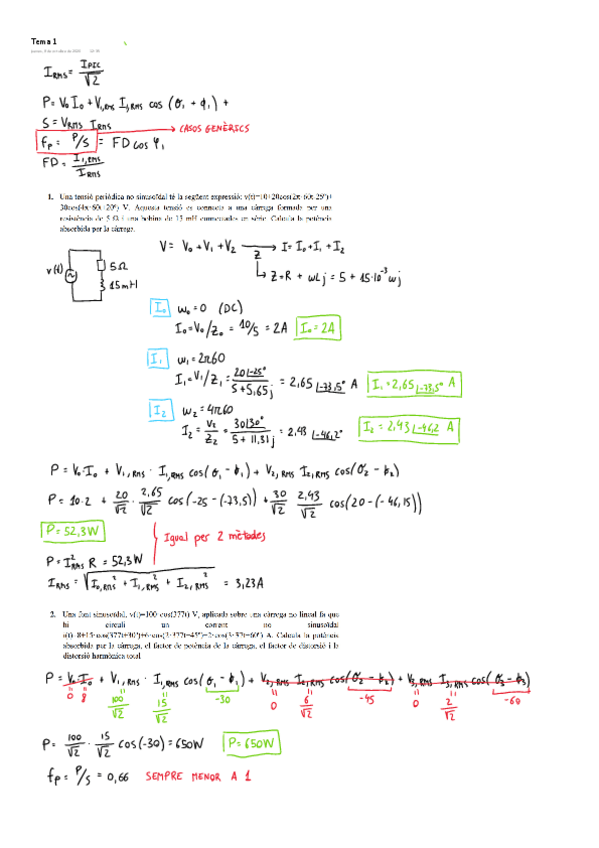 Tema 1
I_RMS = I_PIC / √2
P = V₀ I₀ + V₁,RMS I₁,RMS cos (σ₁ + φ₁) +
S = V_RMS I_RMS
fp = P/S = FD cos φ₁ → CASOS GENÈRICS
FD = I₁,RMS / I_RMS
1. Una tensió periòdica no sinusoïdal té la següent expressió: v(t)=10+20cos(2π·60t-25º)+
30cos(4π·60t+20º) V. Aquesta tensió es connecta a una càrrega formada per una
resistència de 5 Ω i una bobina de 15 mH connectades en sèrie. Calcula la potència
absorbida per la càrrega.
V = V₀ + V₁ + V₂ → I = I₀ + I₁ + I₂
Z
v(t) 5Ω
15mH
Z = R + wLj = 5 + 15·10⁻³ wj
I₀ w₀ = 0 (DC)
I₀ = V₀/Z₀ = 10/5 = 2A I₀ = 2A
I₁ w₁ = 2π60
I₁ = V₁/Z₁ = 20∠-25° / 5+5,65j = 2,65∠-73,5° A I₁ = 2,65∠-73,5° A
I₂ w₂ = 4π60
I₂ = V₂/Z₂ = 30∠30° / 5+11,31j = 2,43∠-46,2° I₂ = 2,43∠-46,2 A
P = V₀·I₀ + V₁,RMS · I₁,RMS cos(σ₁ - φ₁) + V₂,RMS I₂,RMS cos(σ₂ - φ₂)
P = 10·2 + 20/√2 · 2,65/√2 cos(-25 -(-73,5)) + 30/√2 2,43/√2 cos(20 -(-46,15))
P = 52,3W
Igual per 2 mètodes
P = I²_RMS R = 52,3W
I_RMS = √(I₀,RMS² + I₁,RMS² + I₂,RMS²) = 3,23A
2. Una font sinusoïdal, v(t)=100·cos(377t) V, aplicada sobre una càrrega no lineal fa que
hi circuli un corrent no sinusoïdal
i(t)=8+15·cos(377t+30º)+6·cos(2·377t+45º)+2·cos(3·377t+60º) A. Calcula la potència
absorbida per la càrrega, el factor de potència de la càrrega, el factor de distorsió i la
distorsió harmònica total
P = V₀·I₀ + V₁,RMS · I₁,RMS cos(σ₁ - φ₁) + V₂,RMS I₂,RMS cos(σ₂ - φ₂) + V₃,RMS I₃,RMS cos(σ₃ - φ₃)
0 8 100/√2 15/√2 -30 0 6/√2 -45 0 2/√2 -60
P = 100/√2 · 15/√2 cos(-30) = 650W P = 650W
fp = P/S = 0,66 SEMPRE MENOR A 1